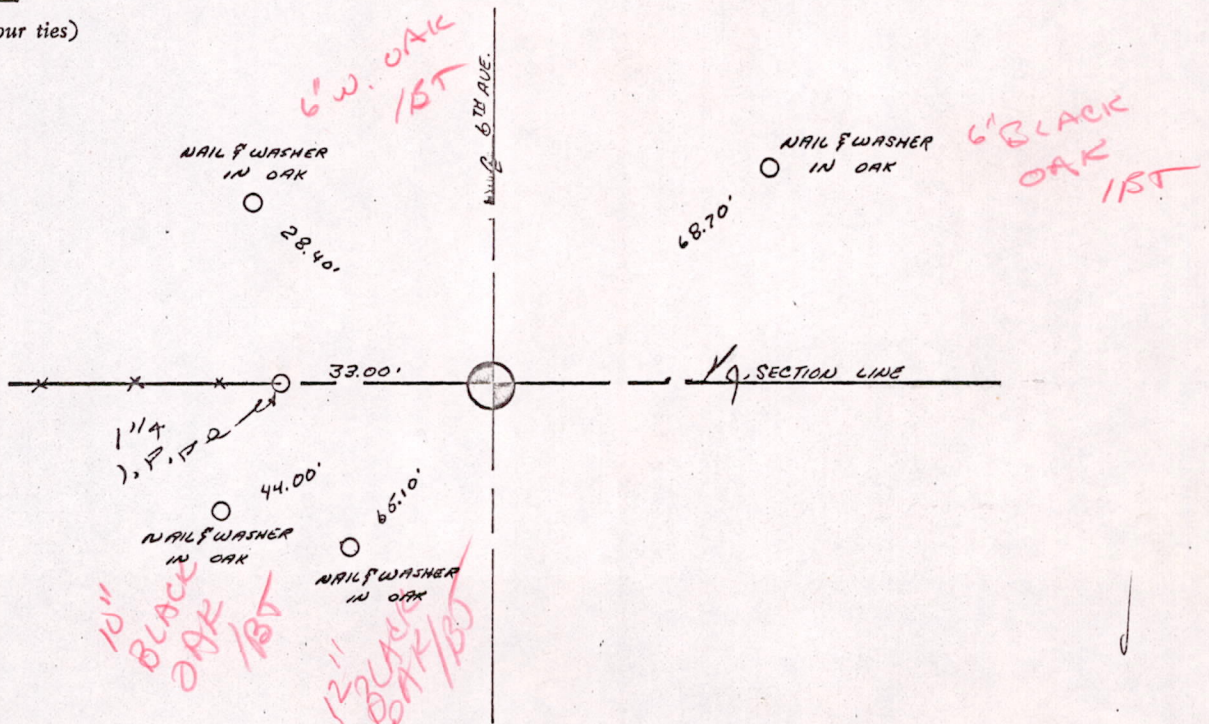 our ties)
6" W. OAK
/BT
℄ 6TH AVE.
NAIL & WASHER
IN OAK
28.40'
NAIL & WASHER
IN OAK
68.70'
6" BLACK
OAK
/BT
33.00'
SECTION LINE
1"1/4
I.P.
44.00'
NAIL & WASHER
IN OAK
66.10'
NAIL & WASHER
IN OAK
10"
BLACK
OAK
/BT
12"
BLACK
OAK/BT